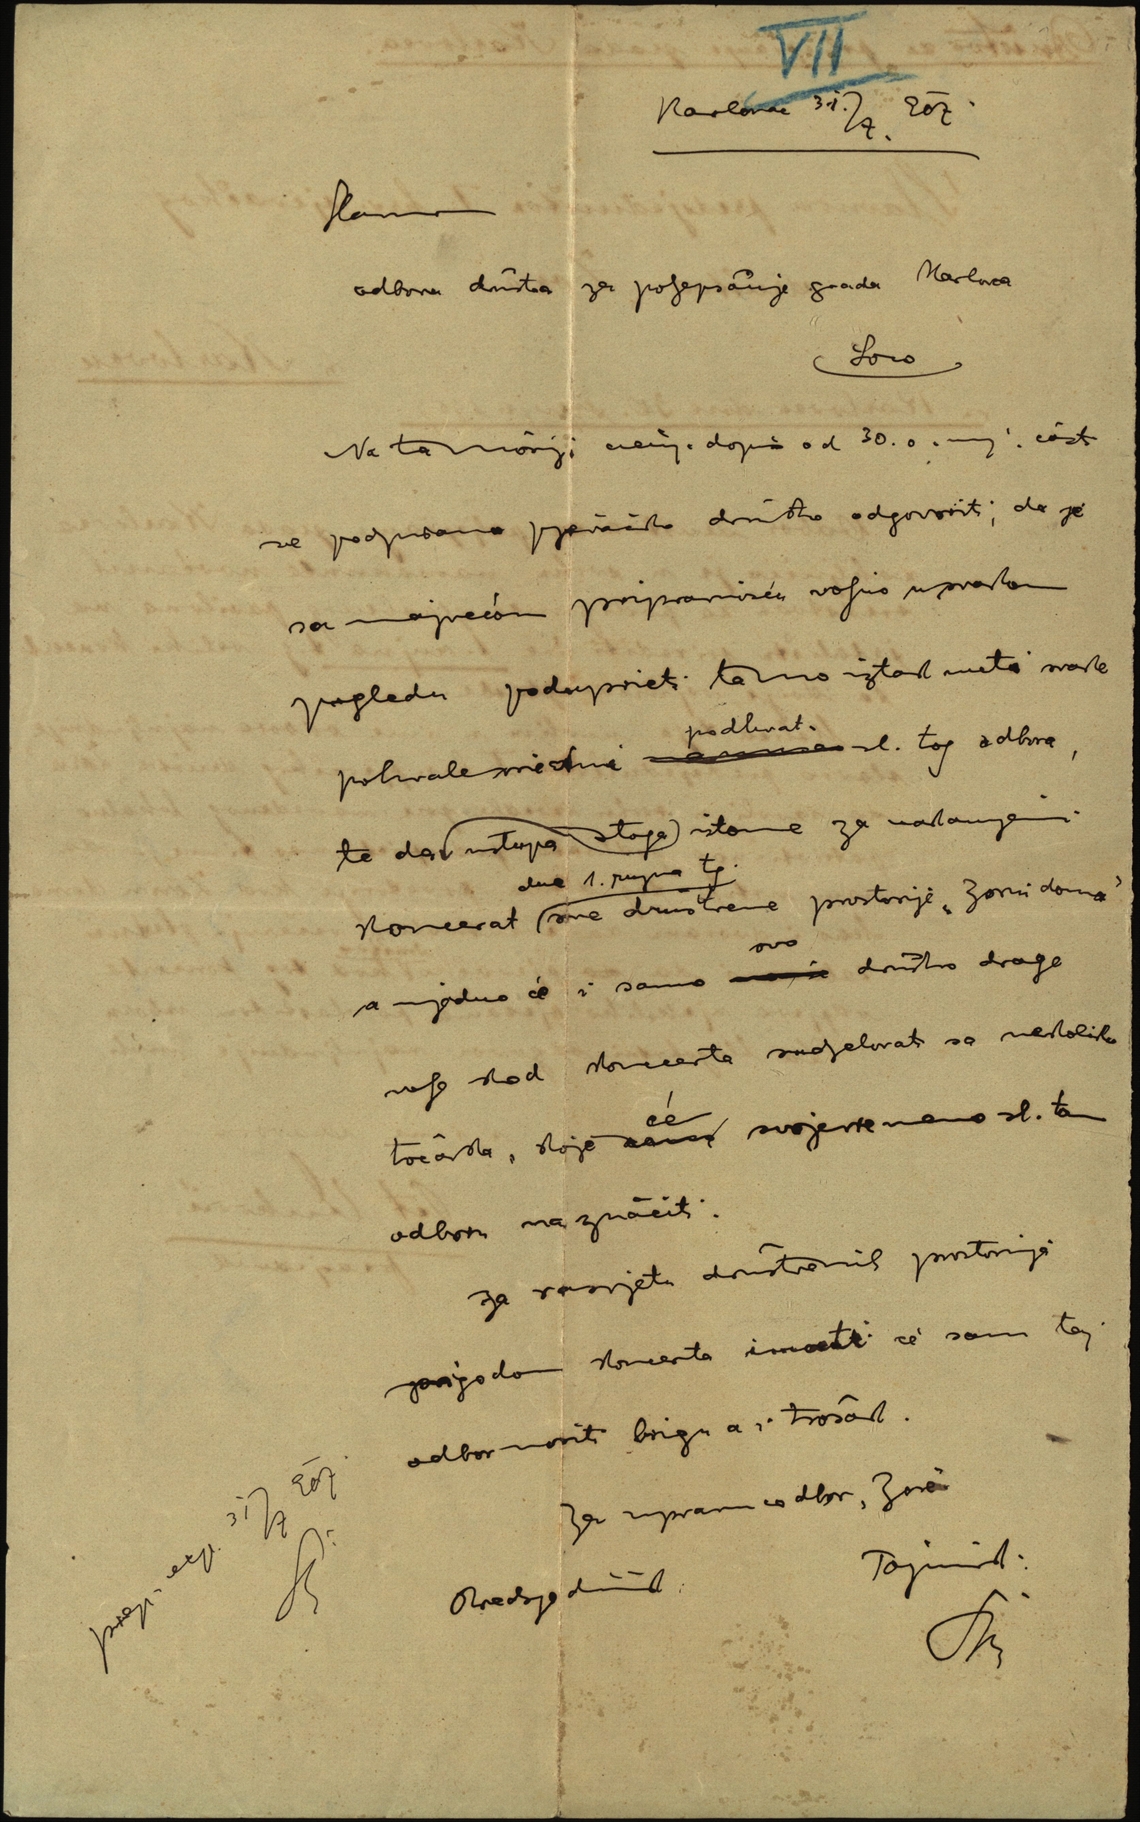 VII
Karlovac 31./7. 907.
Slavnom
odboru družtva za poljepšanje grada Karlovca
Loco
Na tamošnji cienj. dopis od 30. o. mj. čast
je podpisanom pjevačkom družtvu odgovoriti, da je
sa najvećom pripravnošću voljno u svakom
pogledu poduprieti tamo iztaknutu svake
pohvale vriednu podhvat sl. tog odbora,
te da ustupa stoga istome za nastajni
dne 1. rujna tg.
koncerat sve družtvene prostorije „Zorin doma"
a ujedno će i samo ovo družtvo drage
volje kod koncerta sudjelovati sa nekoliko
točaka, koje će svojevremeno sl. tom
odboru naznačiti.
Za rasvjetu družtvenih prostorija
prigodom koncerta imati će sam taj
odbor nositi brigu a i trošak.
Za upravni odbor „Zore"
Predsjednik: Tajnik:
prep. exp. 31/7 907.